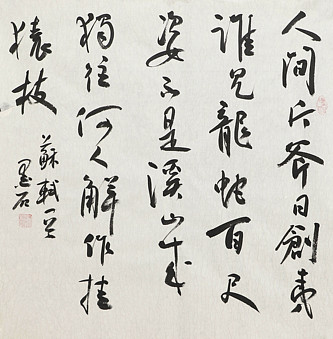 人間斤斧日創夷
誰見龍蛇百尺
姿不是溪山成
獨往何人解作挂
猿枝
蘇軾
墨石